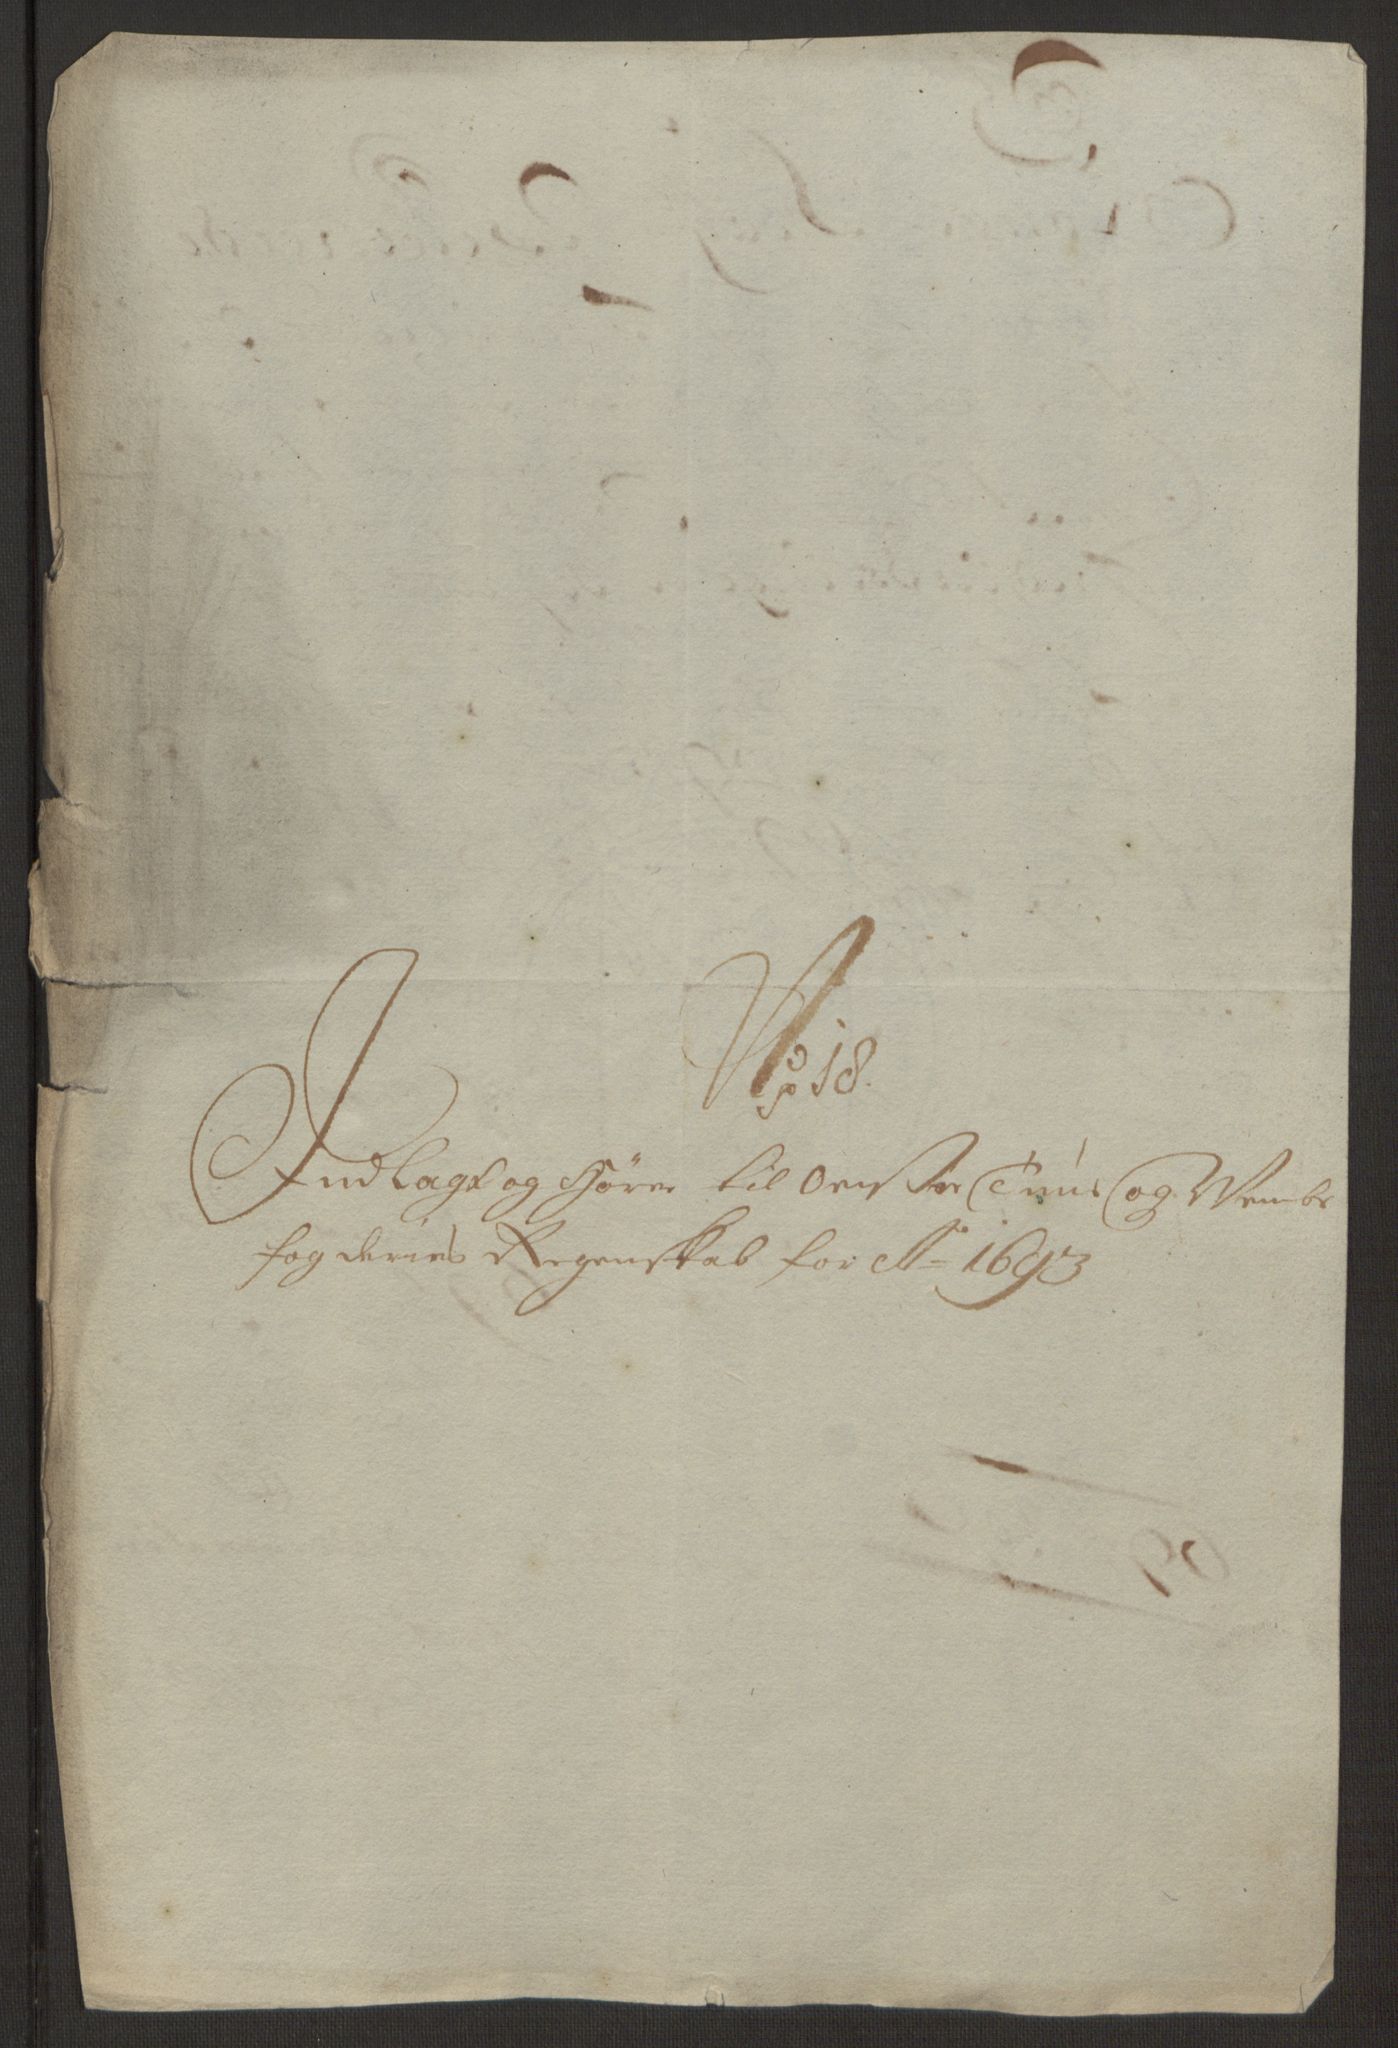 No 18.
Indlagt og hører til Onsøe Tuns og Wembe
fogderies Regenskab for Ao 1693